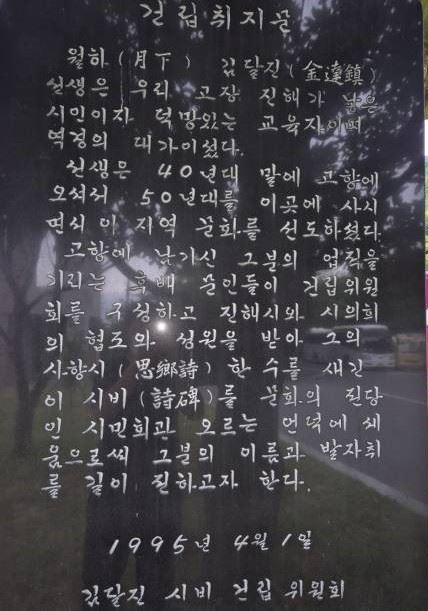 건립취지문
월하(月下) 김달진(金達鎭)
선생은 우리 고장 진해가 낳은
시인이자 덕망있는 교육자이며
역경의 대가이셨다.
선생은 40년대 말에 고향에
오셔서 50년대를 이곳에 사시
면서 이 지역 문화를 선도하셨다.
고향에 남기신 그분의 업적을
기리는 후배 문인들이 건립위원
회를 구성하고 진해시와 시의회
의 협조와 성원을 받아 그의
사향시(思鄕詩) 한 수를 새긴
이 시비(詩碑)를 문화의 전당
인 시민회관 오르는 언덕에 세
움으로써 그분의 이름과 발자취
를 길이 전하고자 한다.
1995년 4월 1일
김달진 시비 건립 위원회